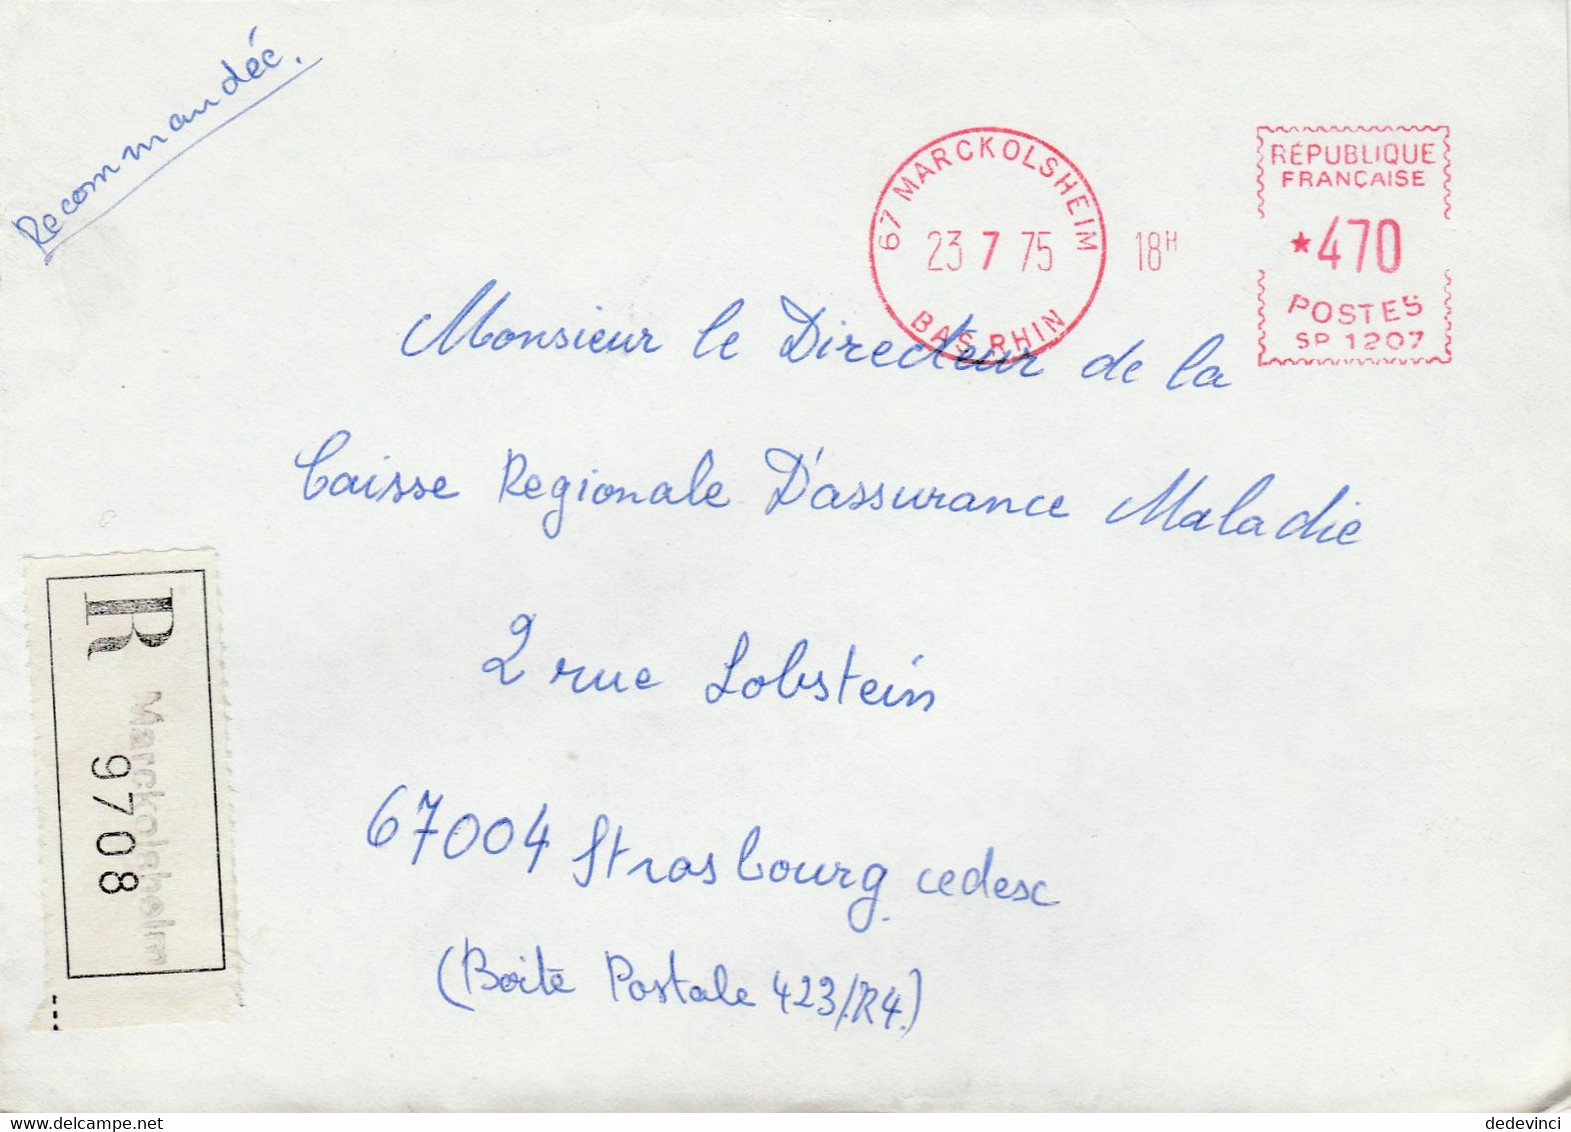 Recommandée.
67 MARCKOLSHEIM
23 7 75
BAS RHIN
18H
RÉPUBLIQUE
FRANÇAISE
*470
POSTES
SP 1207
Monsieur le Directeur de la
Caisse Regionale D'assurance Maladie
2 rue Lobstein
67004 Strasbourg cedex
(Boîte Postale 423/R4.)
R
Marckolsheim
9708
www.delcampe.net
dedevinci